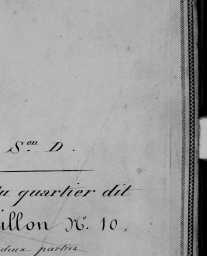 S.on D.
du quartier dit
illon N.o 10.
deux parties